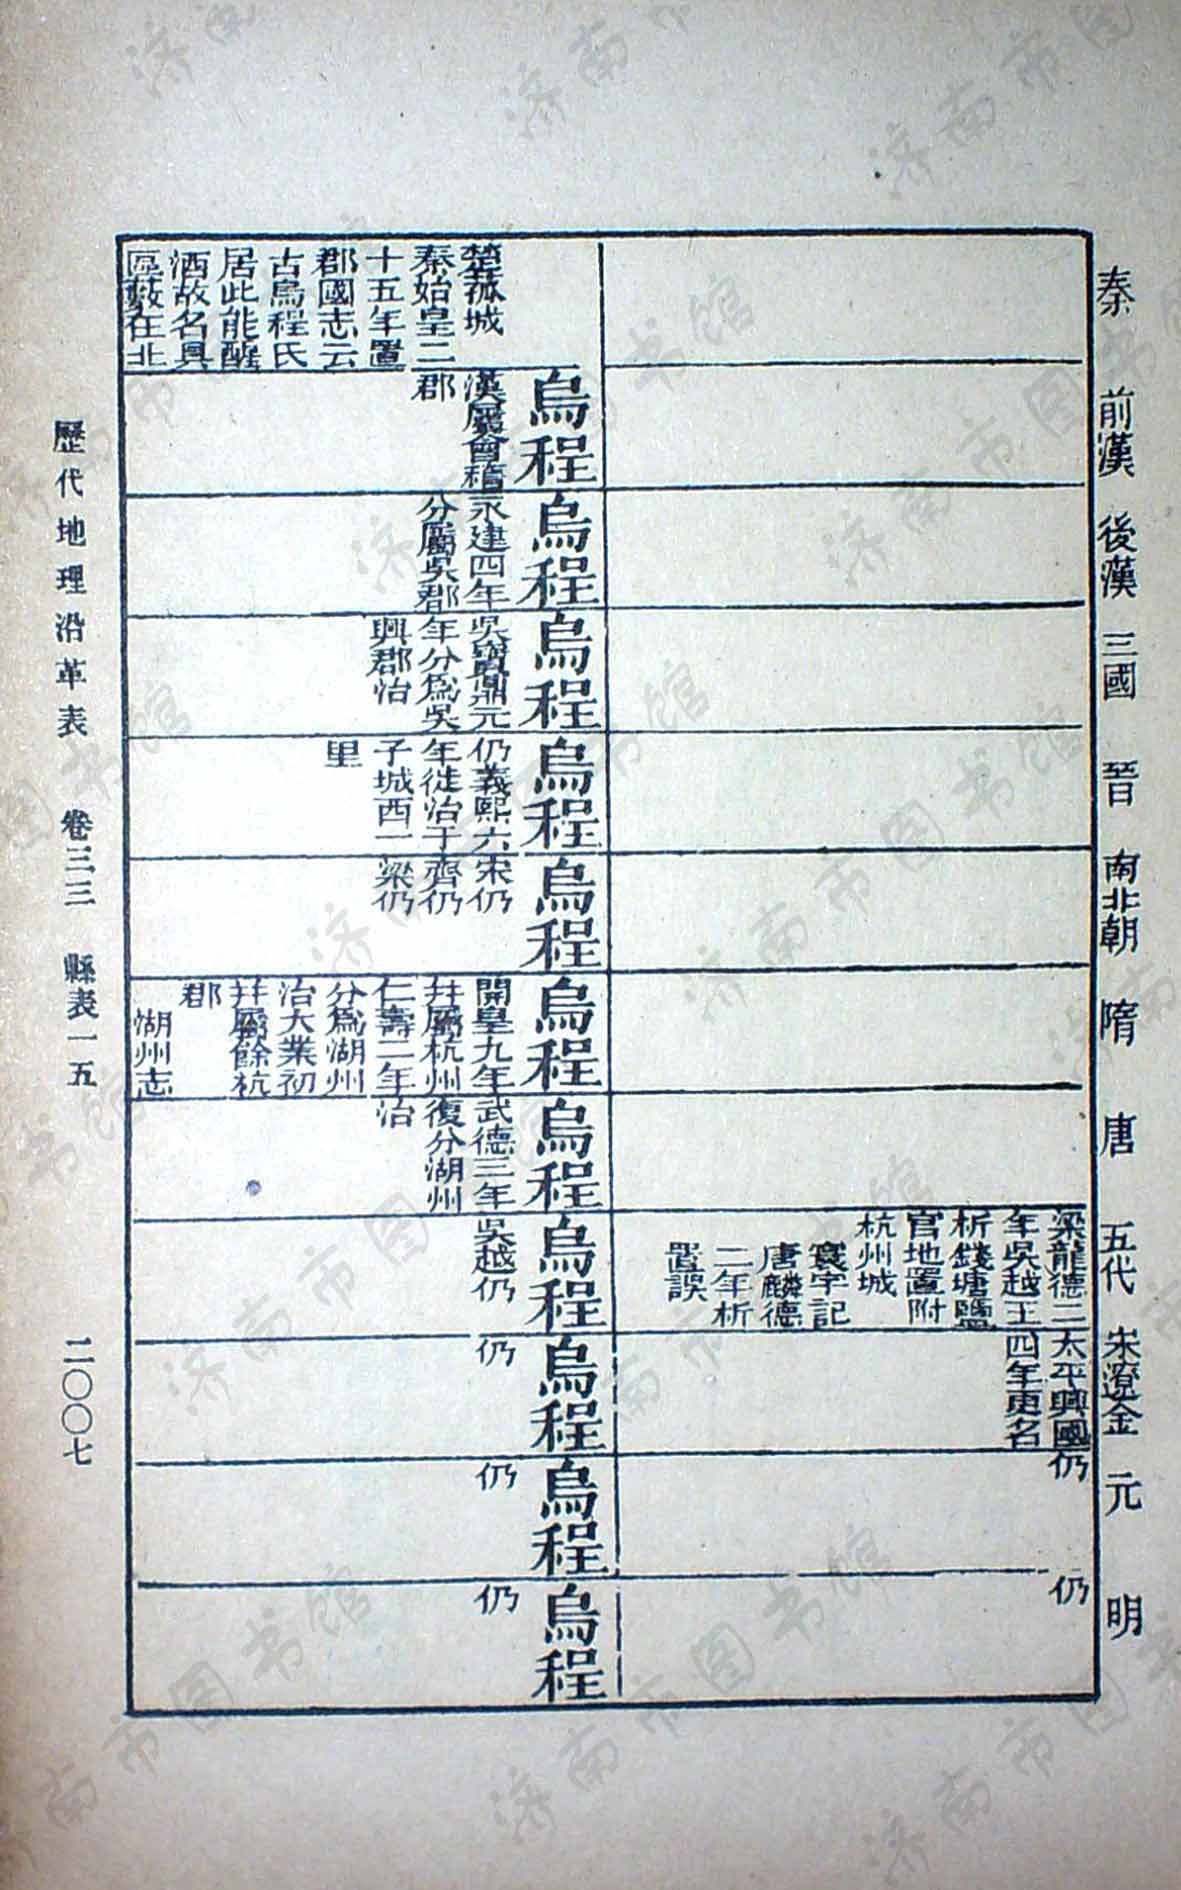 秦
前漢
後漢
三國
晉
南北朝
隋
唐
五代
宋遼金
元
明
梁龍德二
年吳越王
析錢塘鹽
官地置附
杭州城
寰宇記
唐麟德
二年析
置誤
太平興國
四年更名
仍
仍
楚菰城
秦始皇二
十五年置
郡國志云
古烏程氏
居此能醖
酒故名具
區藪在北
烏程
漢屬會稽
郡
烏程
永建四年
分屬吳郡
烏程
吳寶鼎元
年分爲吳
興郡治
烏程
仍義熙六
年徙治于
子城西一
里
烏程
宋仍
齊仍
梁仍
烏程
開皇九年
幷屬杭州
仁壽二年
分爲湖州
治大業初
幷屬餘杭
郡
湖州志
烏程
武德三年
復分湖州
治
烏程
吳越仍
烏程
仍
烏程
仍
烏程
仍
歷代地理沿革表 卷三三 縣表一五 二〇〇七
济南市图书馆